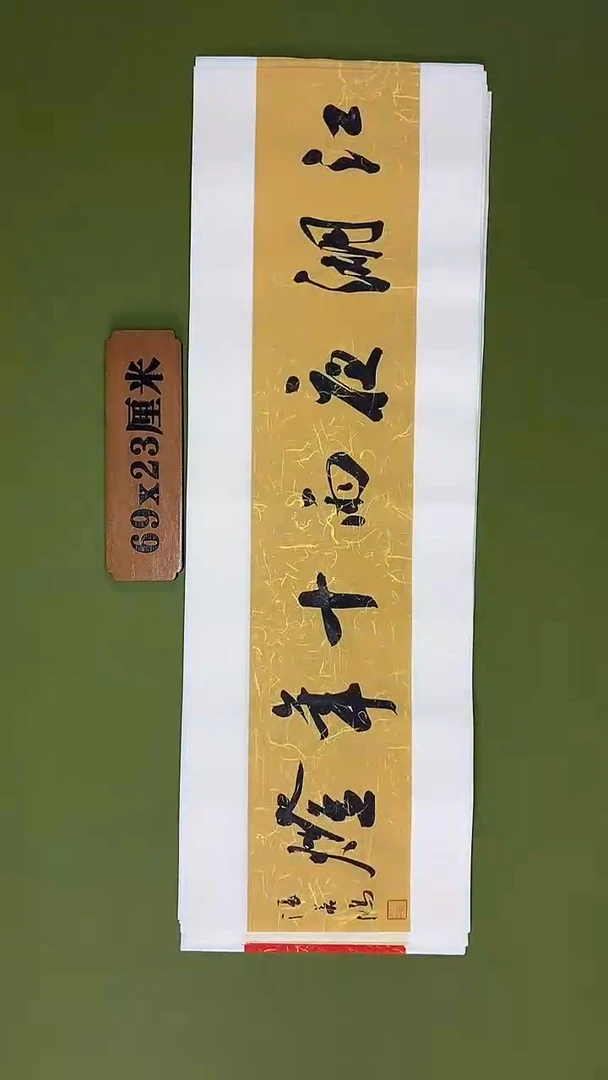 江湖夜雨十年燈
69x23厘米